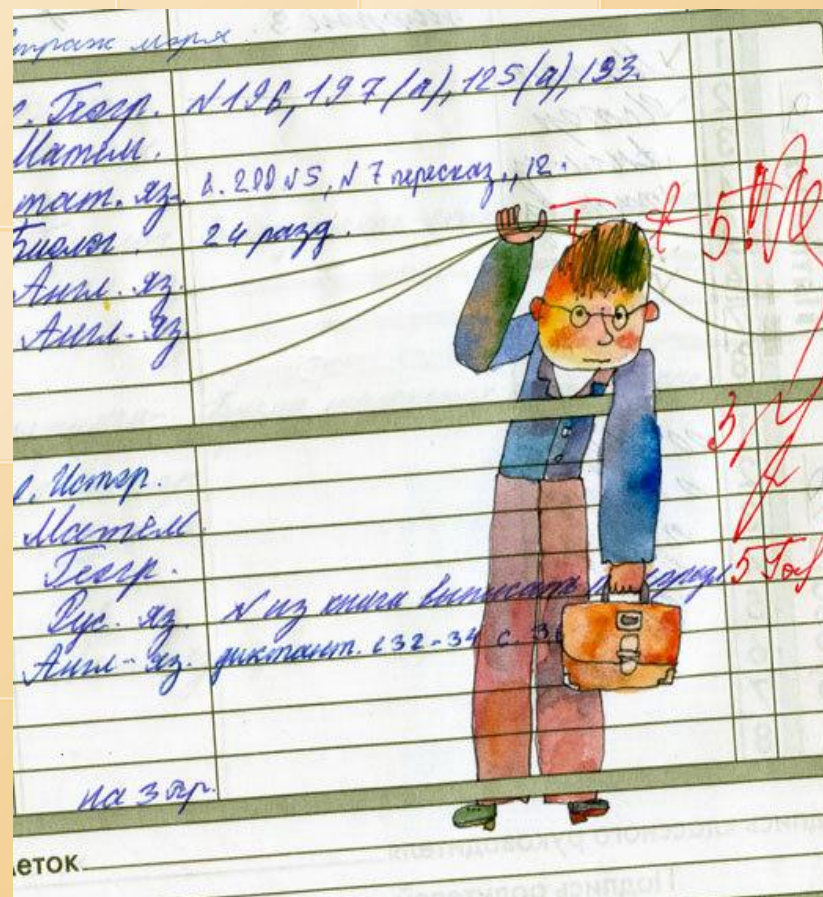 море.
Геогр. N 196, 197 (а), 125 (а), 193.
Матем.
тат. яз. с. 200 N 5, N 7 пересказ., 12.
Биолог. 24 разд.
Англ. яз.
Англ-яз.
5!
3,
Истор.
Матем.
Геогр.
Рус. яз. N из книги выписать 5
Англ-яз. диктант. с 32-34 с. 3
на 3 гр.
еток
Подпись родителей